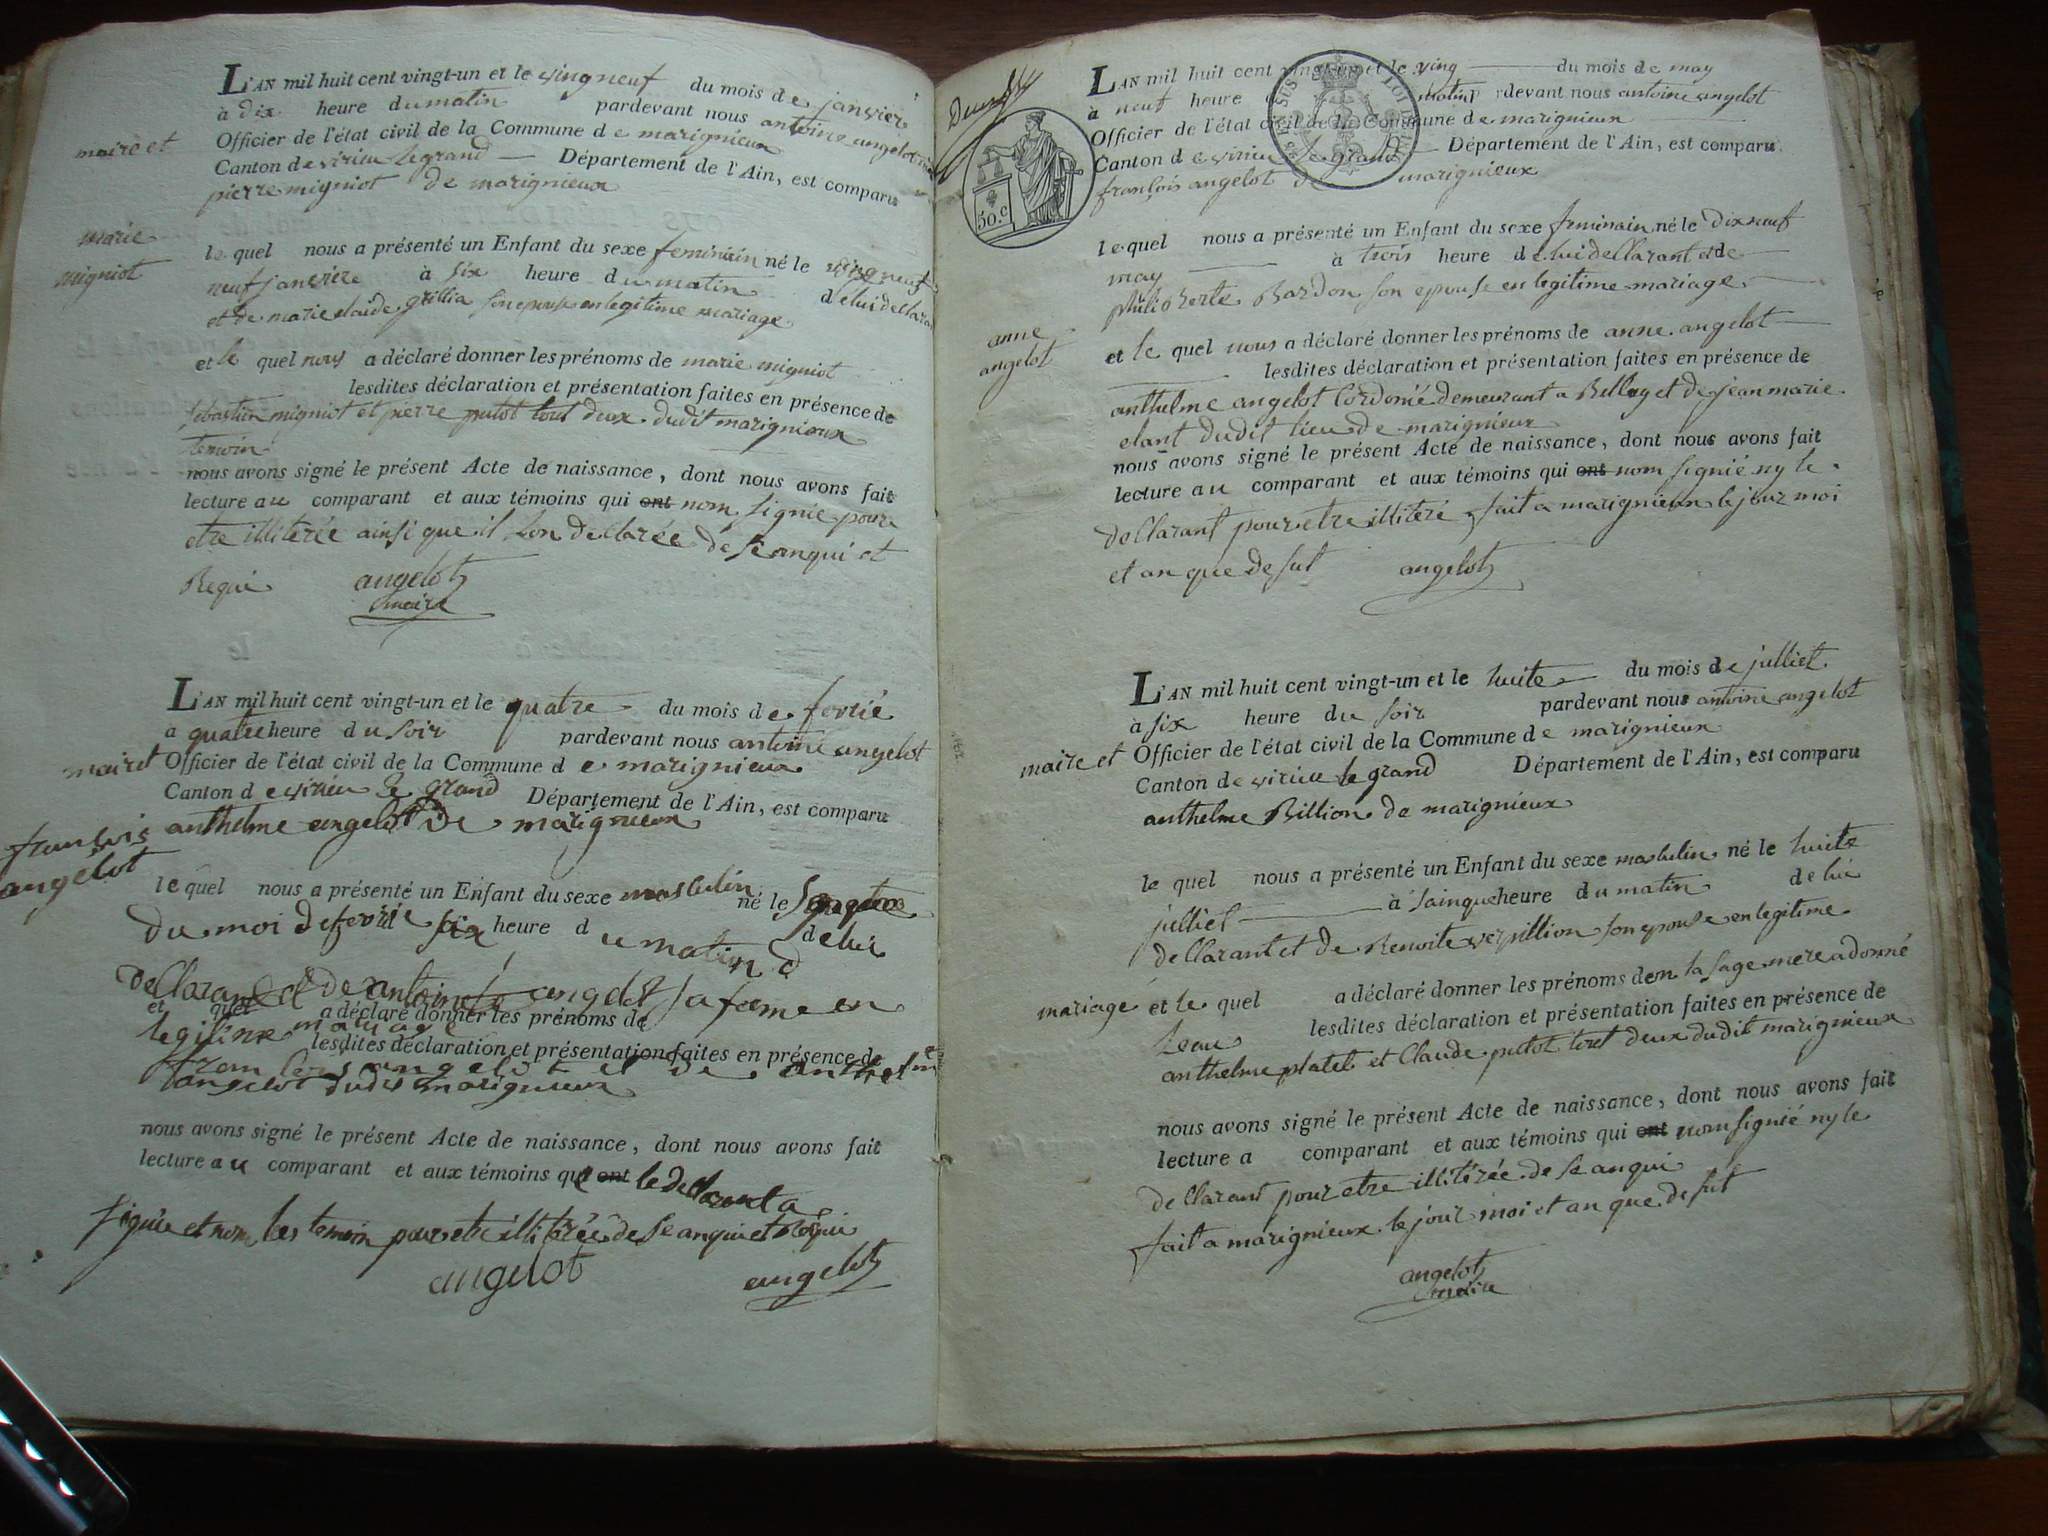 L'AN mil huit cent vingt-un et le vingneuf du mois de janvier
à dix heure du matin pardevant nous antoine angelot
maire et Officier de l'état civil de la Commune de marignieux
Canton de virieu le grand Département de l'Ain, est comparu
pierre migniot de marignieux
marie
migniot
le quel nous a présenté un Enfant du sexe feminin né le
neuf janviere à six heure du matin de lui
et de marie claude grillia son epouse en legitime mariage
et le quel nous a déclaré donner les prénoms de marie migniot
lesdites déclaration et présentation faites en présence de
sebastien migniot et pierre putot tout deux dudit marignieux
temoin
nous avons signé le présent Acte de naissance, dont nous avons fait
lecture au comparant et aux témoins qui ont nom signié pour
etre illiterée ainsi que il lon declarée de se anqui et
Requi angelot
maire
L'AN mil huit cent vingt-un et le quatre du mois de fevrié
a quatre heure du soir pardevant nous antoine angelot
maire et Officier de l'état civil de la Commune de marignieux
Canton de virieu le grand Département de l'Ain, est comparu
anthelme angelot de marignieux
françois
angelot
le quel nous a présenté un Enfant du sexe masculin né le
du moi de fevrié six heure du matin de lui
declarant et de antoinete angelot sa feme en
et quel a déclaré donner les prénoms de
legitime mariage
lesdites déclaration et présentation faites en présence de
françois angelot et de anthelme
angelot dudit marignieux
nous avons signé le présent Acte de naissance, dont nous avons fait
lecture au comparant et aux témoins que ont le declarant a
signié et nom les temoin pour etre illiterée de se anqui et Requi
angelot angelot
50.c
L'AN mil huit cent vingt-un et le ving du mois de may
à neuf heure matin pardevant nous antoine angelot
Officier de l'état civil de la Commune de marignieux
Canton de virieu le grand Département de l'Ain, est comparu
françois angelot de marignieux
le quel nous a présenté un Enfant du sexe feminain né le dixneuf
may à trois heure de lui declarant et de
philiberte Bardon son epouse en legitime mariage
anne
angelot
et le quel nous a déclaré donner les prénoms de anne angelot
lesdites déclaration et présentation faites en présence de
anthelme angelot Cordonié demeurant a Belley et de jean marie
elant dudit lieu de marignieux
nous avons signé le présent Acte de naissance, dont nous avons fait
lecture au comparant et aux témoins qui ont nom signié ny le
declarant pour etre illiteré fait a marignieux le jour moi
et an que desut angelot
L'AN mil huit cent vingt-un et le huite du mois de julliet
à six heure du soir pardevant nous antoine angelot
maire et Officier de l'état civil de la Commune de marignieux
Canton de virieu le grand Département de l'Ain, est comparu
anthelme Billion de marignieux
le quel nous a présenté un Enfant du sexe masculin né le huite
julliet à sainque heure du matin de lui
declarant et de Benoite verpillion son epouse en legitime
mariage et le quel a déclaré donner les prénoms de on la sage mere a donné
lesdites déclaration et présentation faites en présence de
anthelme platel et Claude putot tout deux dudit marignieux
nous avons signé le présent Acte de naissance, dont nous avons fait
lecture a comparant et aux témoins qui ont nom signié ny le
declarant pour etre illitirée de se anqui
fait a marignieux le jour moi et an que desut
angelot
maire